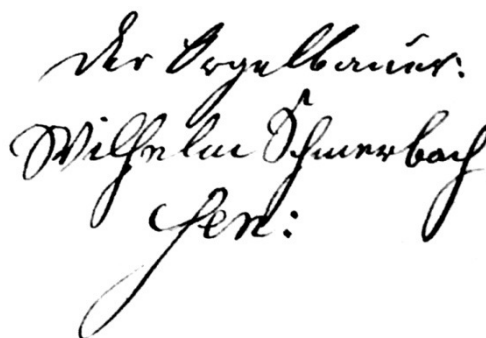 Der Orgelbauer:
Wilhelm Schmerbach
sen: